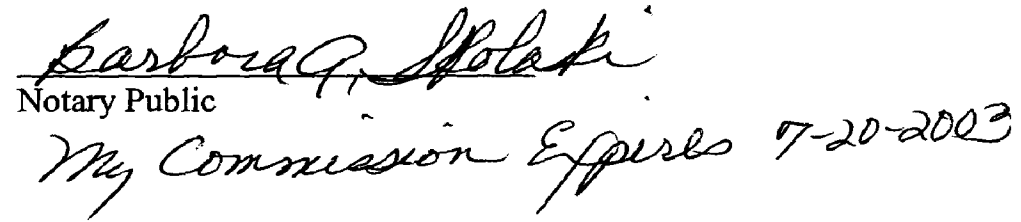 Barbara A. Skolaski
Notary Public
My Commission Expires 7-20-2003